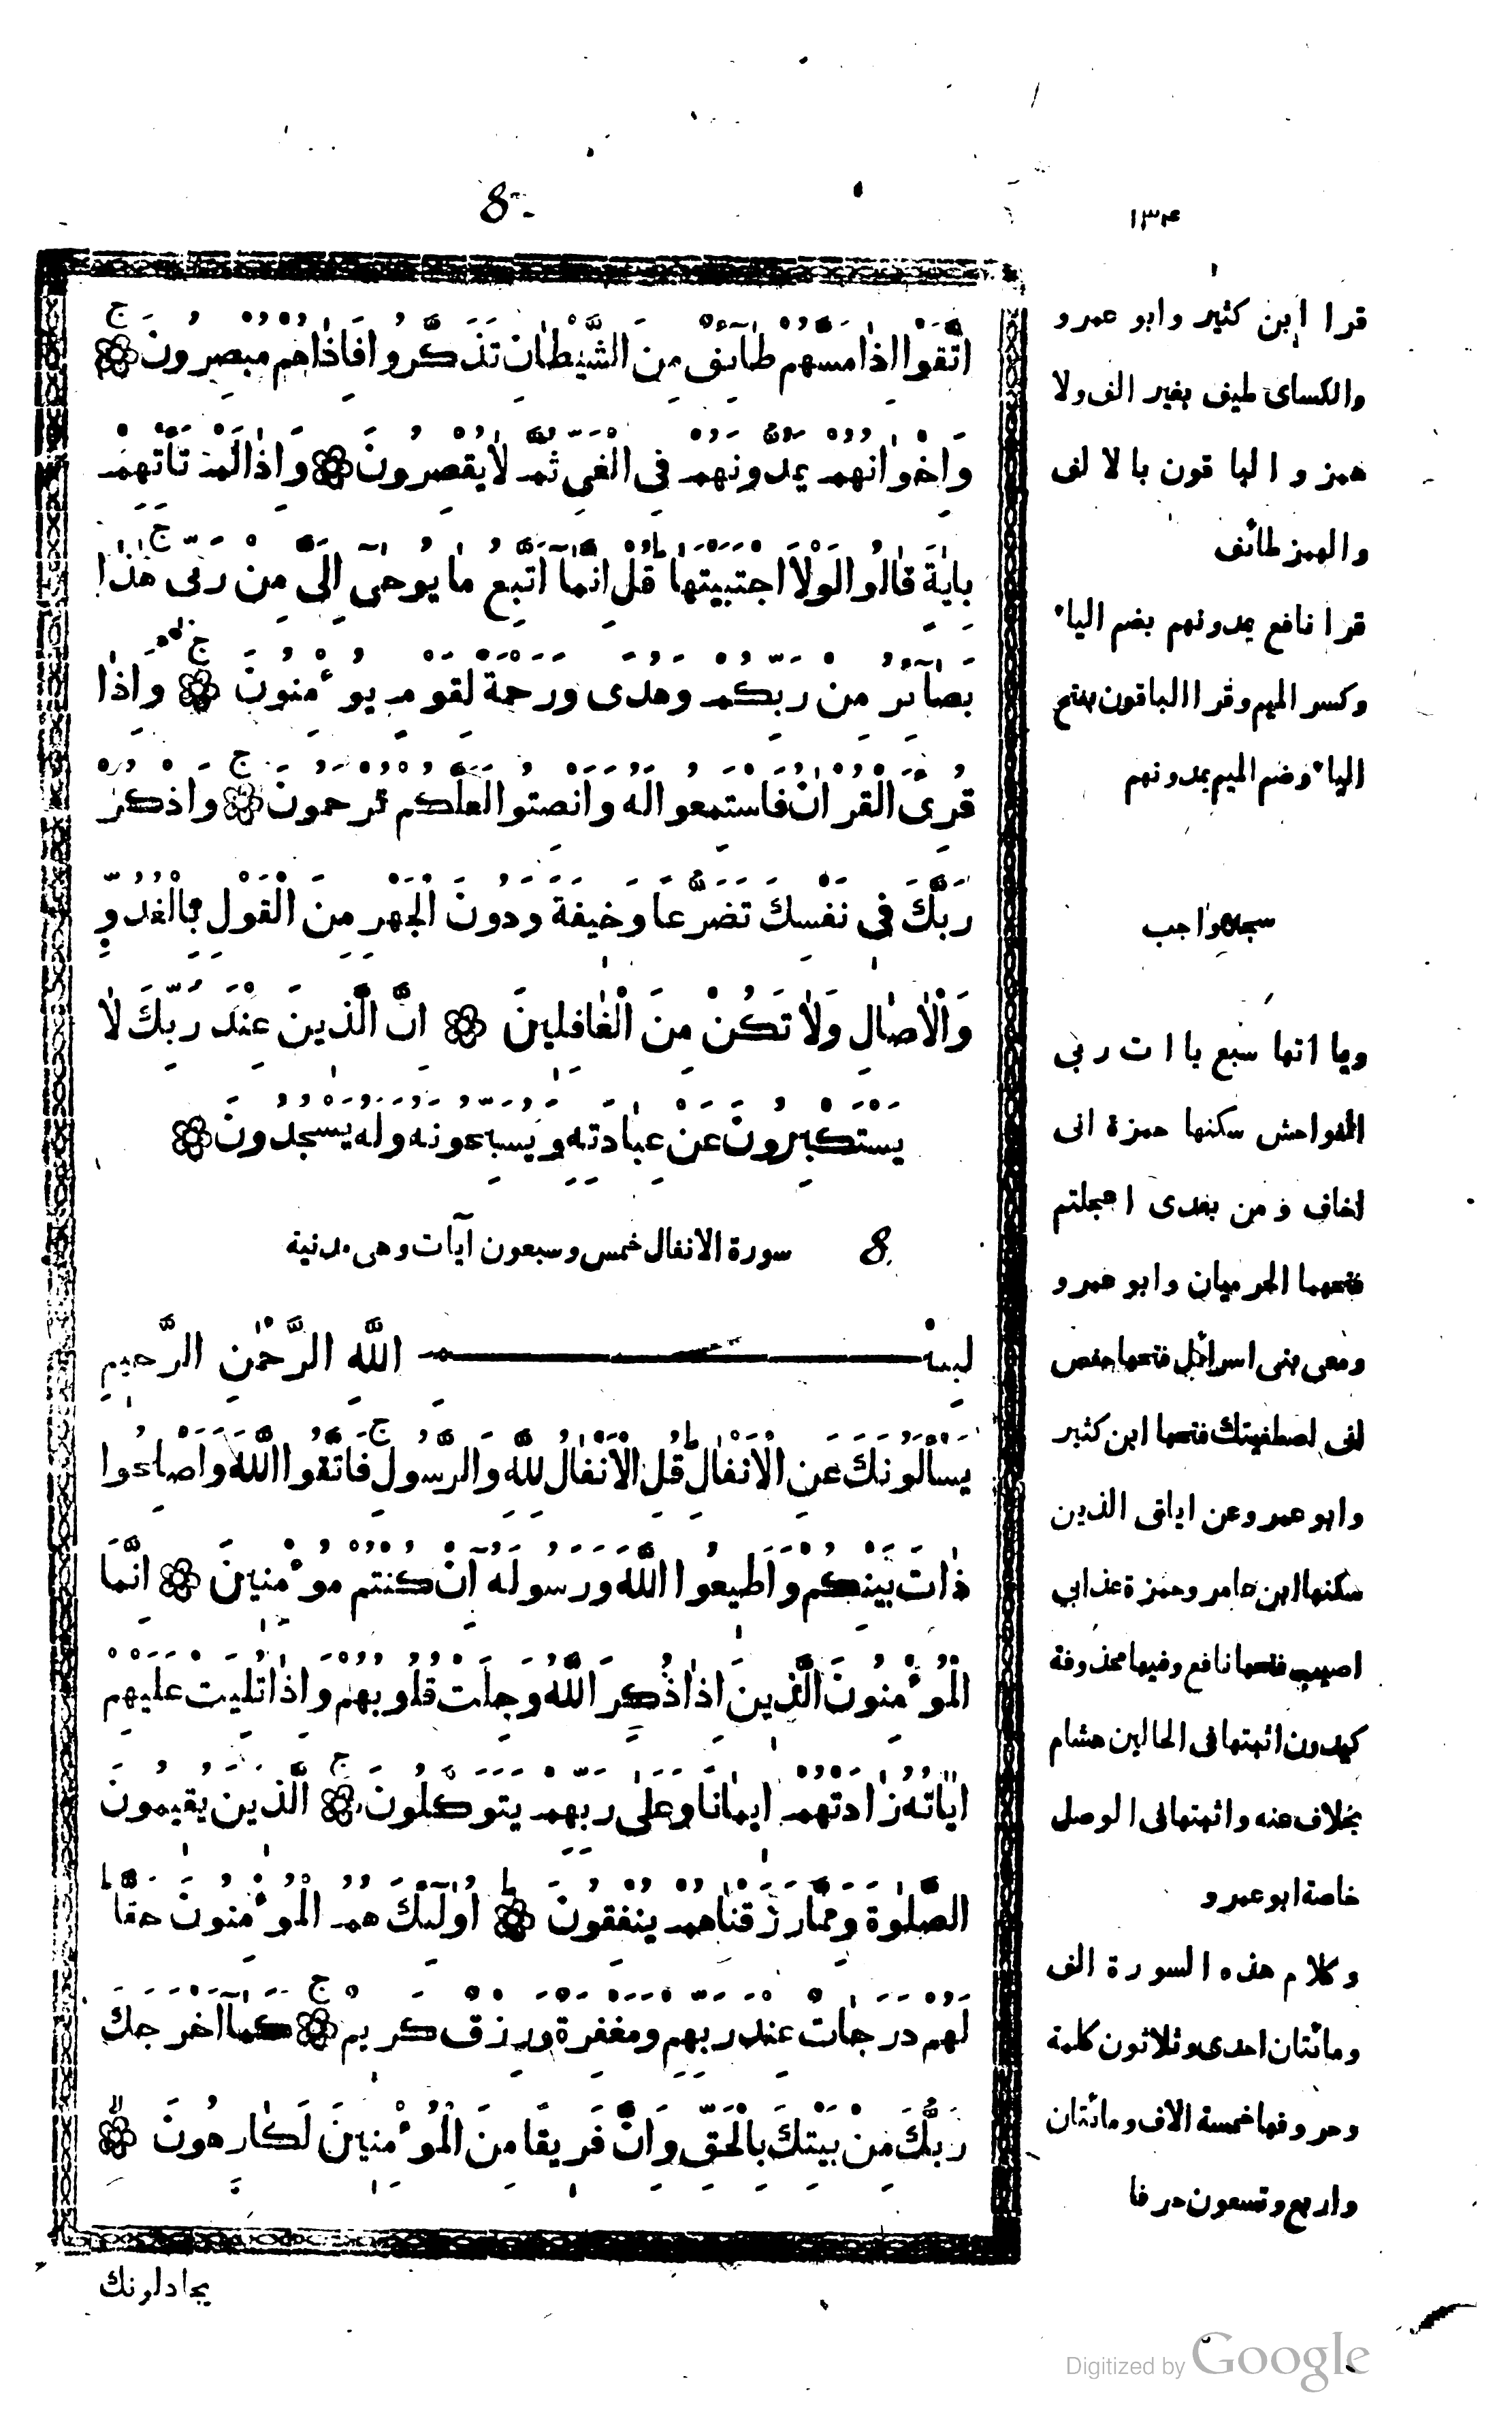 8
۱۳۴
اتَّقَوْا اِذَا مَسَّهُمْ طَآئِفٌ مِنَ الشَّيْطَانِ تَذَكَّرُوا فَاِذَاهُمْ مُبْصِرُونَ ج
وَاِخْوَانُهُمْ يَمُدُّونَهُمْ فِي الْغَيِّ ثُمَّ لَايُقْصِرُونَ وَاِذَا لَمْ تَأْتِهِمْ
بِايَةٍ قَالُوا لَوْلَا اجْتَبَيْتَهَا ط قُلْ اِنَّمَآ اَتَّبِعُ مَا يُوحٰىٓ اِلَيَّ مِنْ رَبِّى ج هٰذَا
بَصَآئِرُ مِنْ رَبِّكُمْ وَهُدًى وَرَحْمَةٌ لِقَوْمٍ يُوءْمِنُونَ ج وَاِذَا
قُرِئَ الْقُرْاٰنُ فَاسْتَمِعُوا لَهُ وَاَنْصِتُوا لَعَلَّكُمْ تُرْحَمُونَ ج وَاذْكُرْ
رَبَّكَ فِى نَفْسِكَ تَضَرُّعًا وَخِيفَةً وَدُونَ الْجَهْرِ مِنَ الْقَوْلِ بِالْغُدُوِّ
وَالْاٰصَالِ وَلَا تَكُنْ مِنَ الْغَافِلِينَ اِنَّ الَّذِينَ عِنْدَ رَبِّكَ لَا
يَسْتَكْبِرُونَ عَنْ عِبَادَتِهِ وَيُسَبِّحُونَهُ وَلَهُ يَسْجُدُونَ
8. سورة الانفال خمس وسبعون آيات وهى مدنية
بِسْمِ اللَّهِ الرَّحْمٰنِ الرَّحِيمِ
يَسْأَلُونَكَ عَنِ الْاَنْفَالِ ط قُلِ الْاَنْفَالُ لِلَّهِ وَالرَّسُولِ ج فَاتَّقُوا اللَّهَ وَاَصْلِحُوا
ذَاتَ بَيْنِكُمْ وَاَطِيعُوا اللَّهَ وَرَسُولَهُ اِنْ كُنْتُمْ مُوءْمِنِينَ اِنَّمَا
الْمُوءْمِنُونَ الَّذِينَ اِذَا ذُكِرَ اللَّهُ وَجِلَتْ قُلُوبُهُمْ وَاِذَا تُلِيَتْ عَلَيْهِمْ
اٰيَاتُهُ زَادَتْهُمْ اِيمَانًا وَعَلَى رَبِّهِمْ يَتَوَكَّلُونَ ج الَّذِينَ يُقِيمُونَ
الصَّلٰوةَ وَمِمَّا رَزَقْنَاهُمْ يُنْفِقُونَ ط اُولَٓئِكَ هُمُ الْمُوءْمِنُونَ حَقًّا ط
لَهُمْ دَرَجَاتٌ عِنْدَ رَبِّهِمْ وَمَغْفِرَةٌ وَرِزْقٌ كَرِيمٌ ج كَمَآ اَخْرَجَكَ
رَبُّكَ مِنْ بَيْتِكَ بِالْحَقِّ وَاِنَّ فَرِيقًا مِنَ الْمُوءْمِنِينَ لَكَارِهُونَ لا
يجادلونك
قرا ابن كثير وابو عمرو
والكساى طيف بغير الف ولا
همز والباقون بالالف
والهمز طائف
قرا نافع يمدونهم بضم الياء
وكسر الميم وقرا الباقون بفتح
الياء وضم الميم يمدونهم
سجدة واجب
وياءاتها سبع ياات ربى
الفواحش سكنها حمزة انى
اخاف ومن بعدى اعجلتم
فتحهما الحرميان وابو عمرو
ومعى بنى اسرائيل فتحها حفص
انى اصطفيتك فتحها ابن كثير
وابو عمرو وعن اياتى الذين
سكنها ابن عامر وحمزة عذابي
اصيب فتحها نافع وفيها محذوفة
كيدون اثبتها فى الحالين هشام
بخلاف عنه واثبتها فى الوصل
خاصة ابو عمرو
وكلام هذه السورة الف
ومائتان احدى وثلاثون كلمة
وحروفها خمسة الاف ومائتان
واربع وتسعون حرفا
Digitized by Google